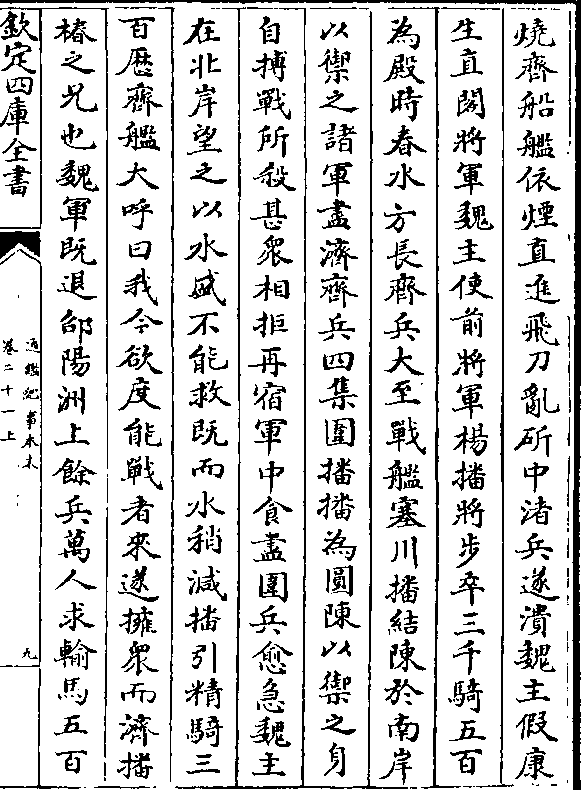 燒齊船艦依煙直進飛刀亂斫中渚兵遂潰魏主假康
生直閣將軍魏主使前將軍楊播將步卒三千騎五百
為殿時春水方長齊兵大至戰艦塞川播結陳於南岸
以禦之諸軍盡濟齊兵四集圍播播為圓陳以禦之身
自搏戰所殺甚衆相拒再宿軍中食盡圍兵愈急魏主
在北岸望之以水盛不能救既而水稍減播引精騎三
百歴齊艦大呼曰我今欲度能戰者來遂擁衆而濟播
椿之兄也魏軍既退邵陽洲上餘兵萬人求輸馬五百
欽定四庫全書
通鑑紀事本末
卷二十一上
九